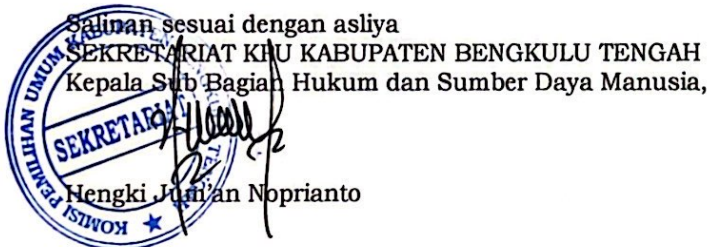 Salinan sesuai dengan asliya
SEKRETARIAT KPU KABUPATEN BENGKULU TENGAH
Kepala Sub Bagian Hukum dan Sumber Daya Manusia,
KOMISI PEMILIHAN UMUM KABUPATEN BENGKULU TENGAH
SEKRETARIAT
Hengki Jum'an Noprianto